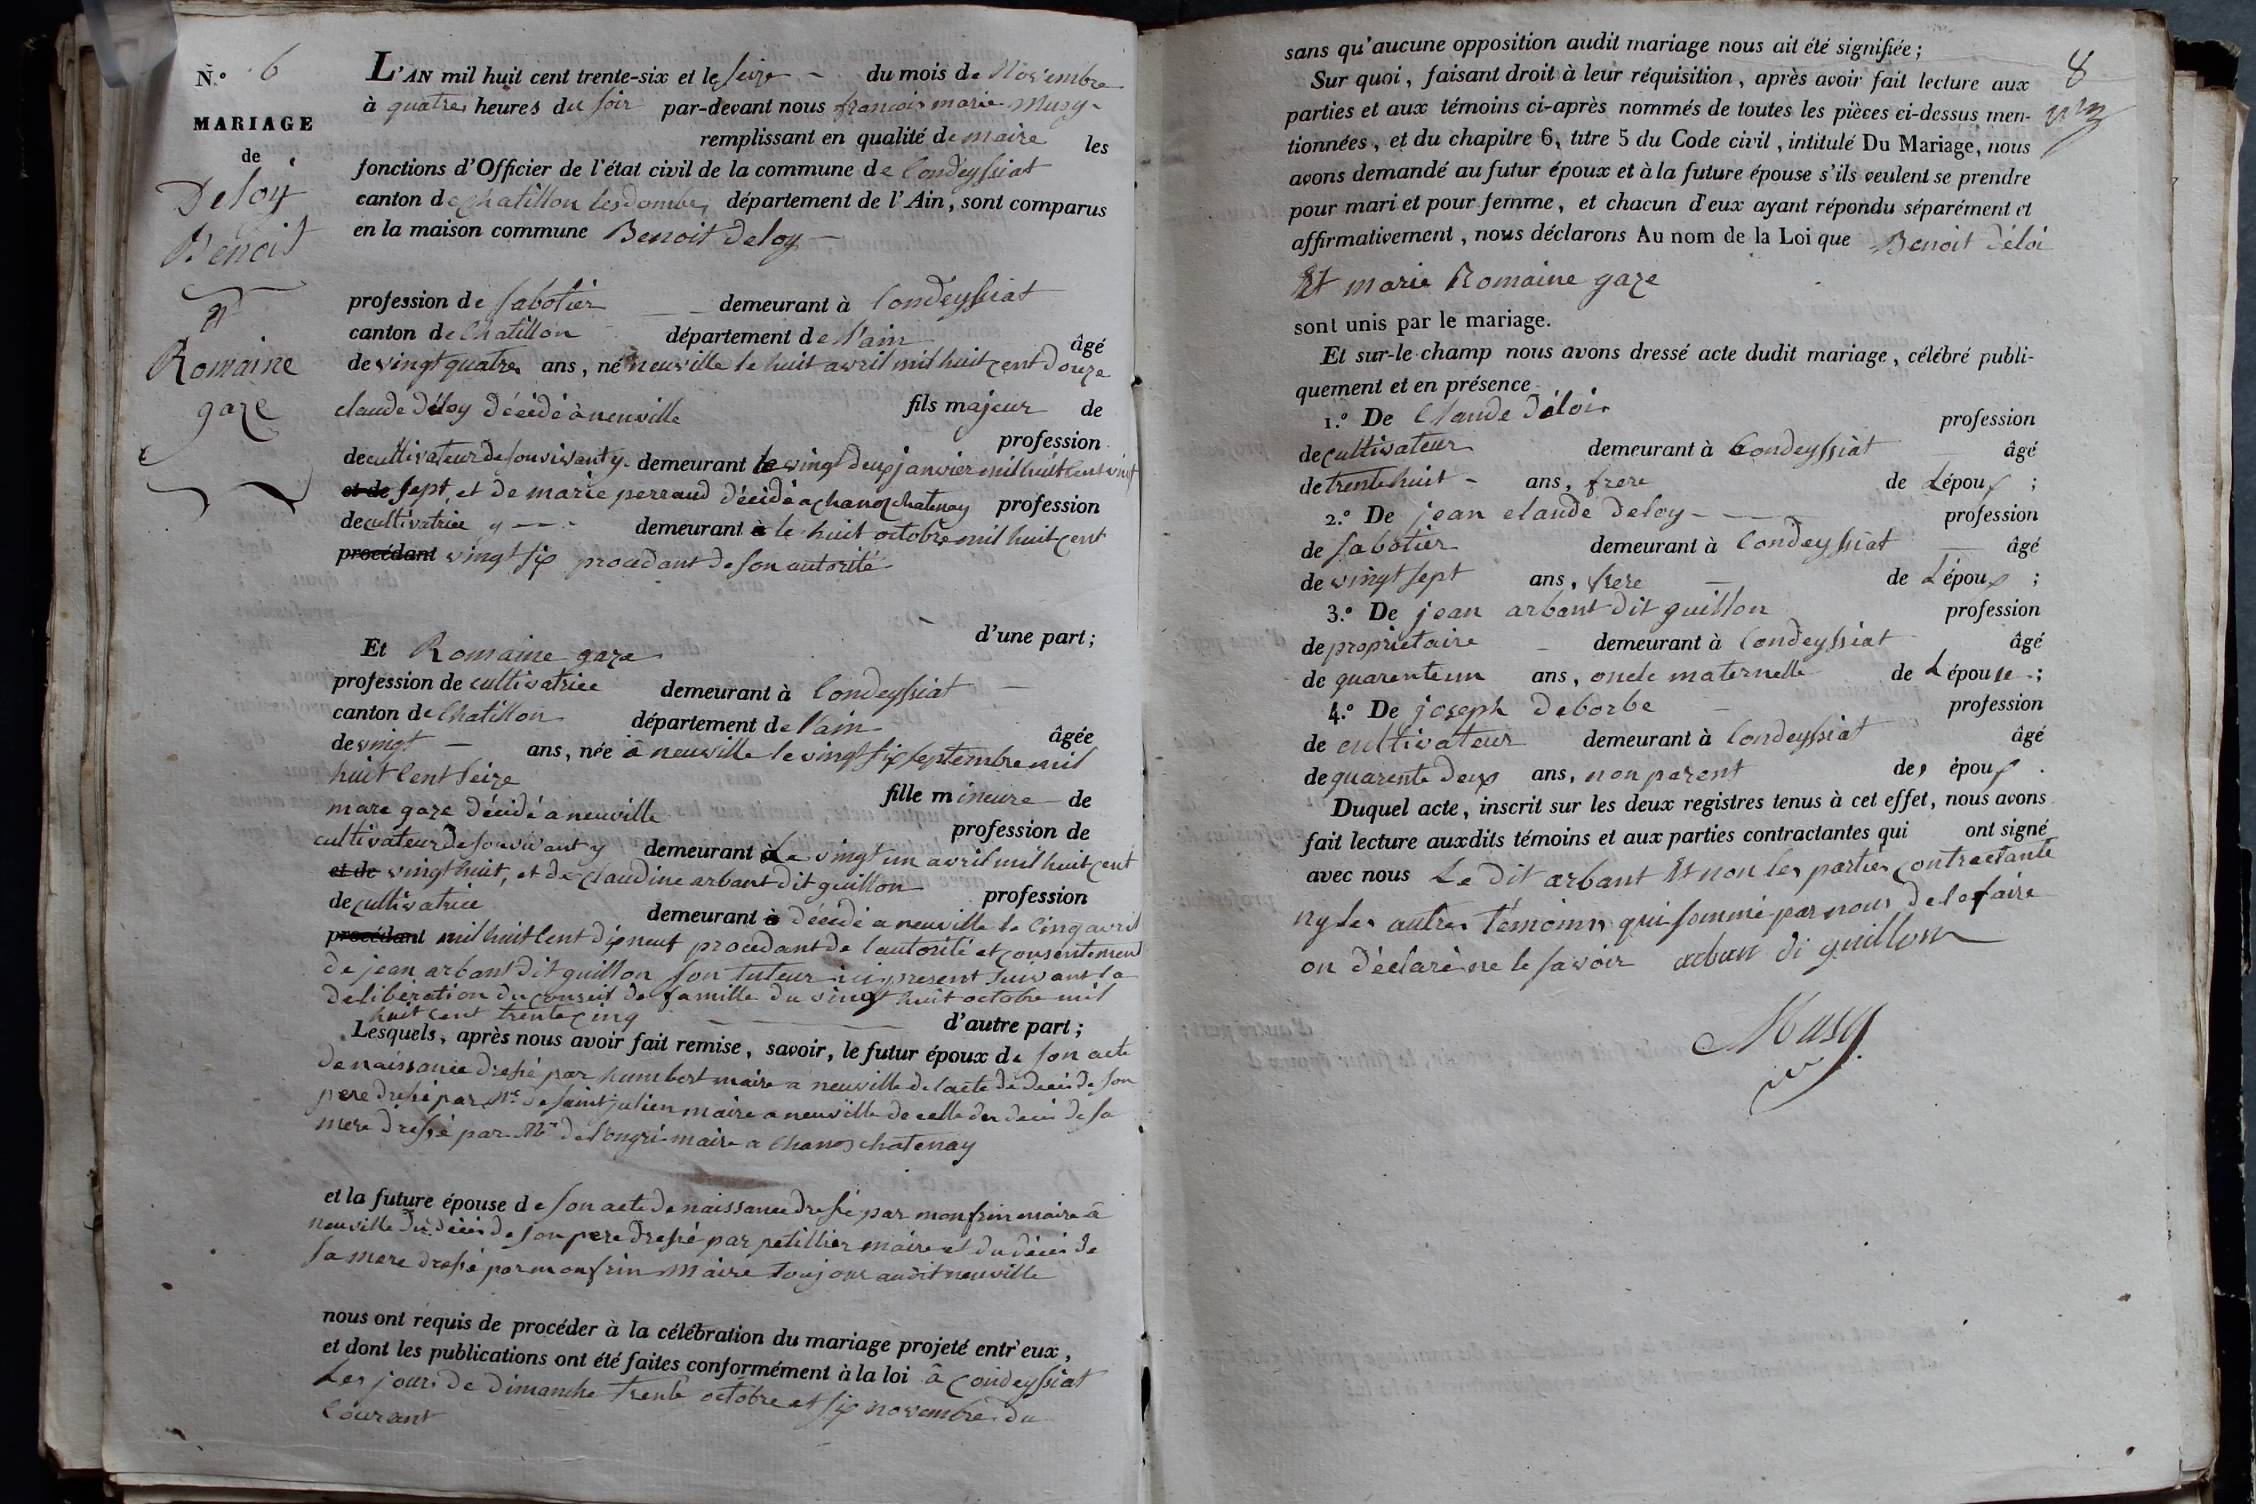 N.o 6
MARIAGE
de
Deloy
Benoit
et
Romaine
gaze
L'AN mil huit cent trente-six et le seize du mois de Novembre
à quatres heures du soir par-devant nous francois marie Musy
remplissant en qualité de maire les
fonctions d'Officier de l'état civil de la commune de Condeyssiat
canton de chatillon les dombes département de l'Ain, sont comparus
en la maison commune Benoit deloy
profession de sabotier demeurant à Condeyssiat
canton de Chatillon département de l'ain âgé
de vingt quatres ans, né neuville le huit avril mil huit cent douze
claude déloy décédé à neuville fils majeur de
profession
de cultivateur de son vivant y demeurant le vingt deux janvier mil huit cent vint
et de sept, et de marie perraud décédé a chanoz chatenay profession
de cultivatrice y demeurant à le huit octobre mil huit cent
procédant vingt six procedant de son autorité
d'une part;
Et Romaine gaze
profession de cultivatrice demeurant à Condeyssiat
canton de Chatillon département de l'ain âgée
de vingt ans, née à neuville le vingt six septembre mil
huit cent seize
fille mineure de
marc gaze décédé a neuville
profession de
cultivateur de son vivant y demeurant à le vingt un avril mil huit cent
et de vingt huit, et de claudine arbant dit guillon profession
de cultivatrice demeurant à décédé a neuville le cinq avril
procédant mil huit cent dix neuf procedant de l'autorité et consentement
de jean arbant dit guillon son tuteur ici present suivant la
deliberation du conseil de famille du vingt huit octobre mil
huit cent trente cinq d'autre part;
Lesquels, après nous avoir fait remise, savoir, le futur époux de son acte
de naissance dressé par humbert maire a neuville de lacte de deces de son
pere dressé par Mr de saint julien maire a neuville de celle du deces de sa
mere dressé par Mr de maire a Chanoz chatenay
et la future épouse de son acte de naissance dressé par monfrin maire à
neuville du décès de son pere dressé par petillier maire et du décès de
sa mere dressé par monfrin maire toujour audit neuville
nous ont requis de procéder à la célébration du mariage projeté entr'eux,
et dont les publications ont été faites conformément à la loi à Condeyssiat
Les jours de dimanche trente octobre et six novembre du
courant
8
sans qu'aucune opposition audit mariage nous ait été signifiée;
Sur quoi, faisant droit à leur réquisition, après avoir fait lecture aux
parties et aux témoins ci-après nommés de toutes les pièces ci-dessus men-
tionnées, et du chapitre 6, titre 5 du Code civil, intitulé Du Mariage, nous
avons demandé au futur époux et à la future épouse s'ils veulent se prendre
pour mari et pour femme, et chacun d'eux ayant répondu séparément et
affirmativement, nous déclarons Au nom de la Loi que Benoit déloi
Et marie Romaine gaze
sont unis par le mariage.
Et sur-le-champ nous avons dressé acte dudit mariage, célébré publi-
quement et en présence
1.o De Claude déloi profession
de cultivateur demeurant à Condeyssiat âgé
de trente huit ans, frere de Lépoux ;
2.o De jean claude deloy profession
de sabotier demeurant à Condeyssiat âgé
de vingt sept ans, frere de Lépoux ;
3.o De jean arbant dit guillon profession
de proprietaire demeurant à Condeyssiat âgé
de quarente un ans, oncle maternelle de Lépouse ;
4.o De joseph deborbe profession
de cultivateur demeurant à Condeyssiat âgé
de quarente deux ans, non parent des époux .
Duquel acte, inscrit sur les deux registres tenus à cet effet, nous avons
fait lecture auxdits témoins et aux parties contractantes qui ont signé
avec nous Le dit arbant Et non les parties contractante
ny les autres témoins qui sommé par nous de le faire
on déclaré ne le savoir arban di guillon
Musy